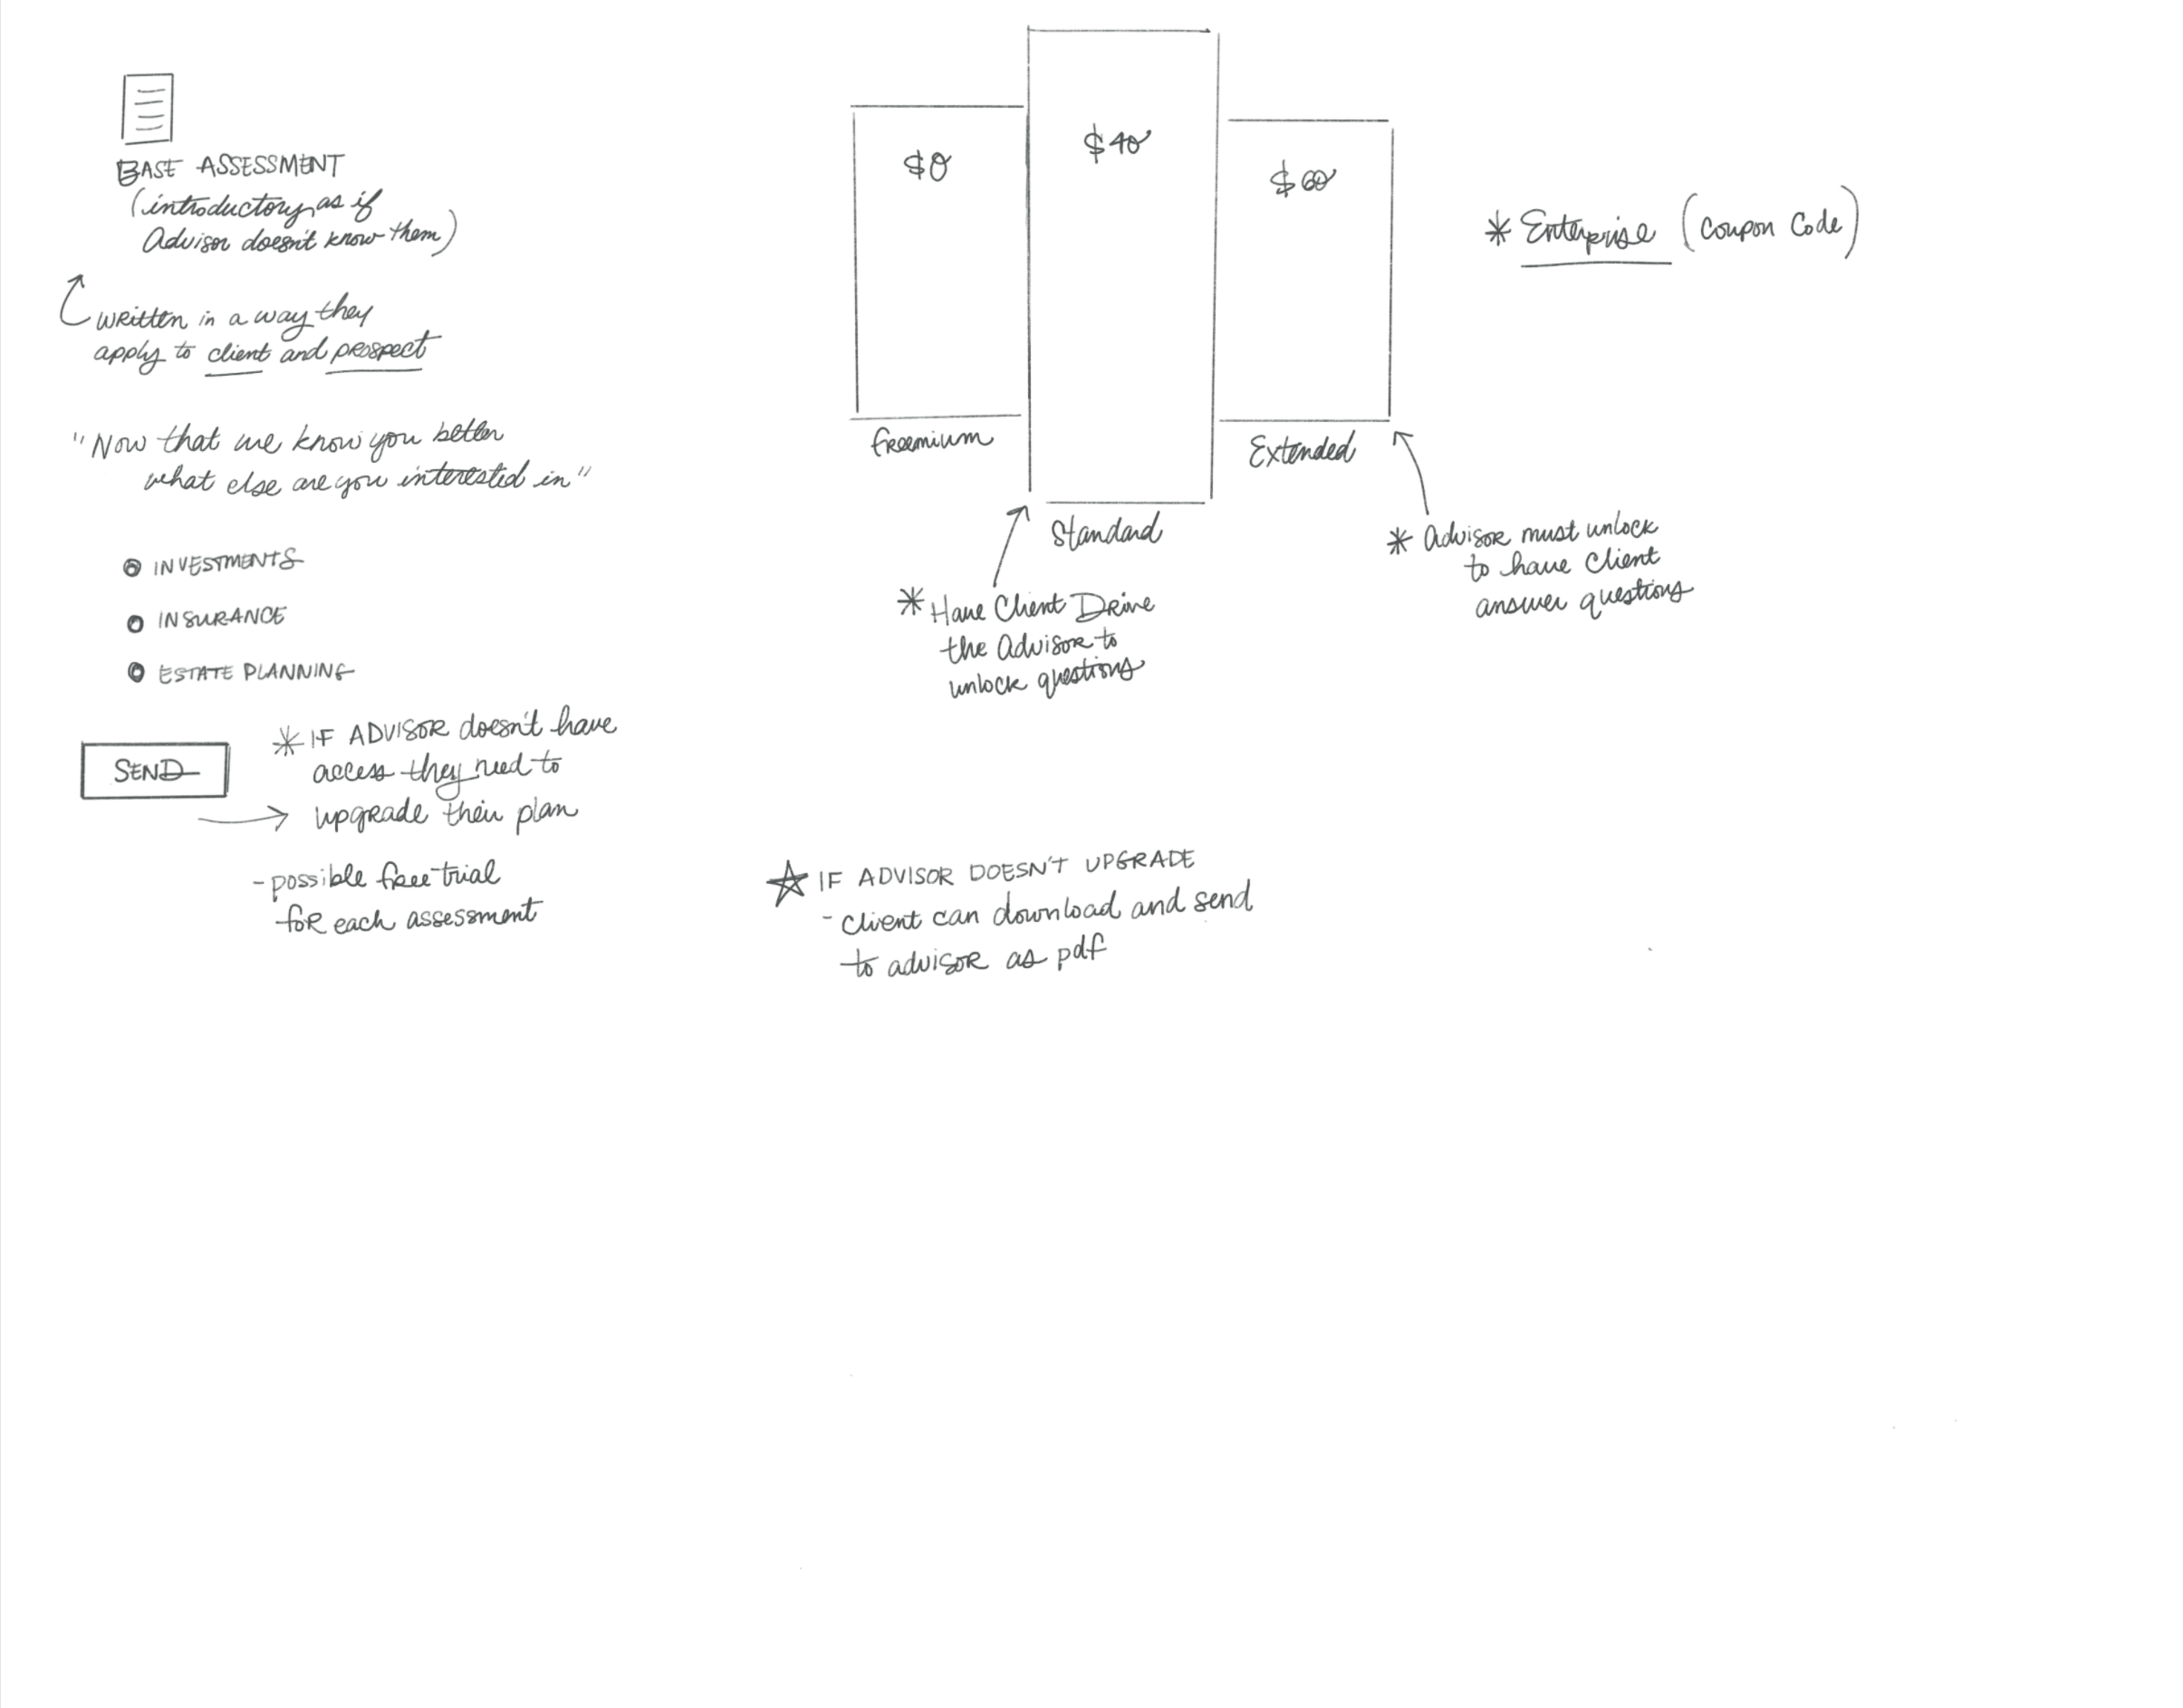 BASE ASSESSMENT
(introductory, as if
Advisor doesn't know them)
written in a way they
apply to client and prospect
"Now that we know you better
what else are you interested in"
INVESTMENTS
INSURANCE
ESTATE PLANNING
SEND
* IF ADVISOR doesn't have
access they need to
upgrade their plan
- possible free trial
for each assessment
$0
$40
$60
freemium
Standard
Extended
* Enterprise (Coupon Code)
* Have Client Drive
the Advisor to
unlock questions
* Advisor must unlock
to have Client
answer questions
IF ADVISOR DOESN'T UPGRADE
- client can download and send
to advisor as pdf